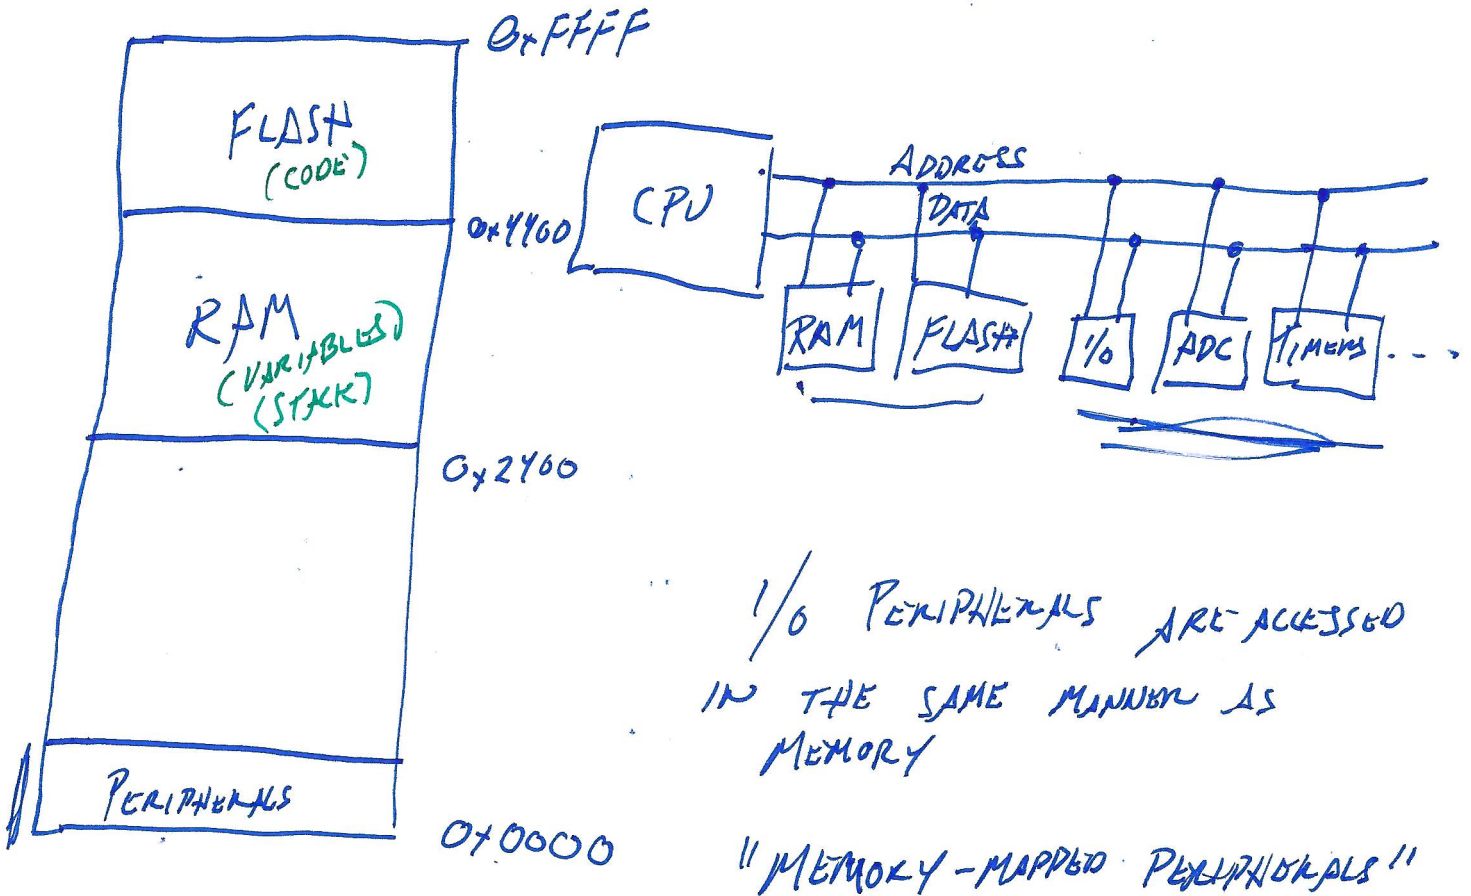 0xFFFF
FLASH
(CODE)
0x4400
RAM
(VARIABLES)
(STACK)
0x2400
PERIPHERALS
0x0000
CPU
ADDRESS
DATA
RAM
FLASH
I/O
ADC
TIMERS ....
I/O PERIPHERALS ARE ACCESSED
IN THE SAME MANNER AS
MEMORY
"MEMORY-MAPPED PERIPHERALS"